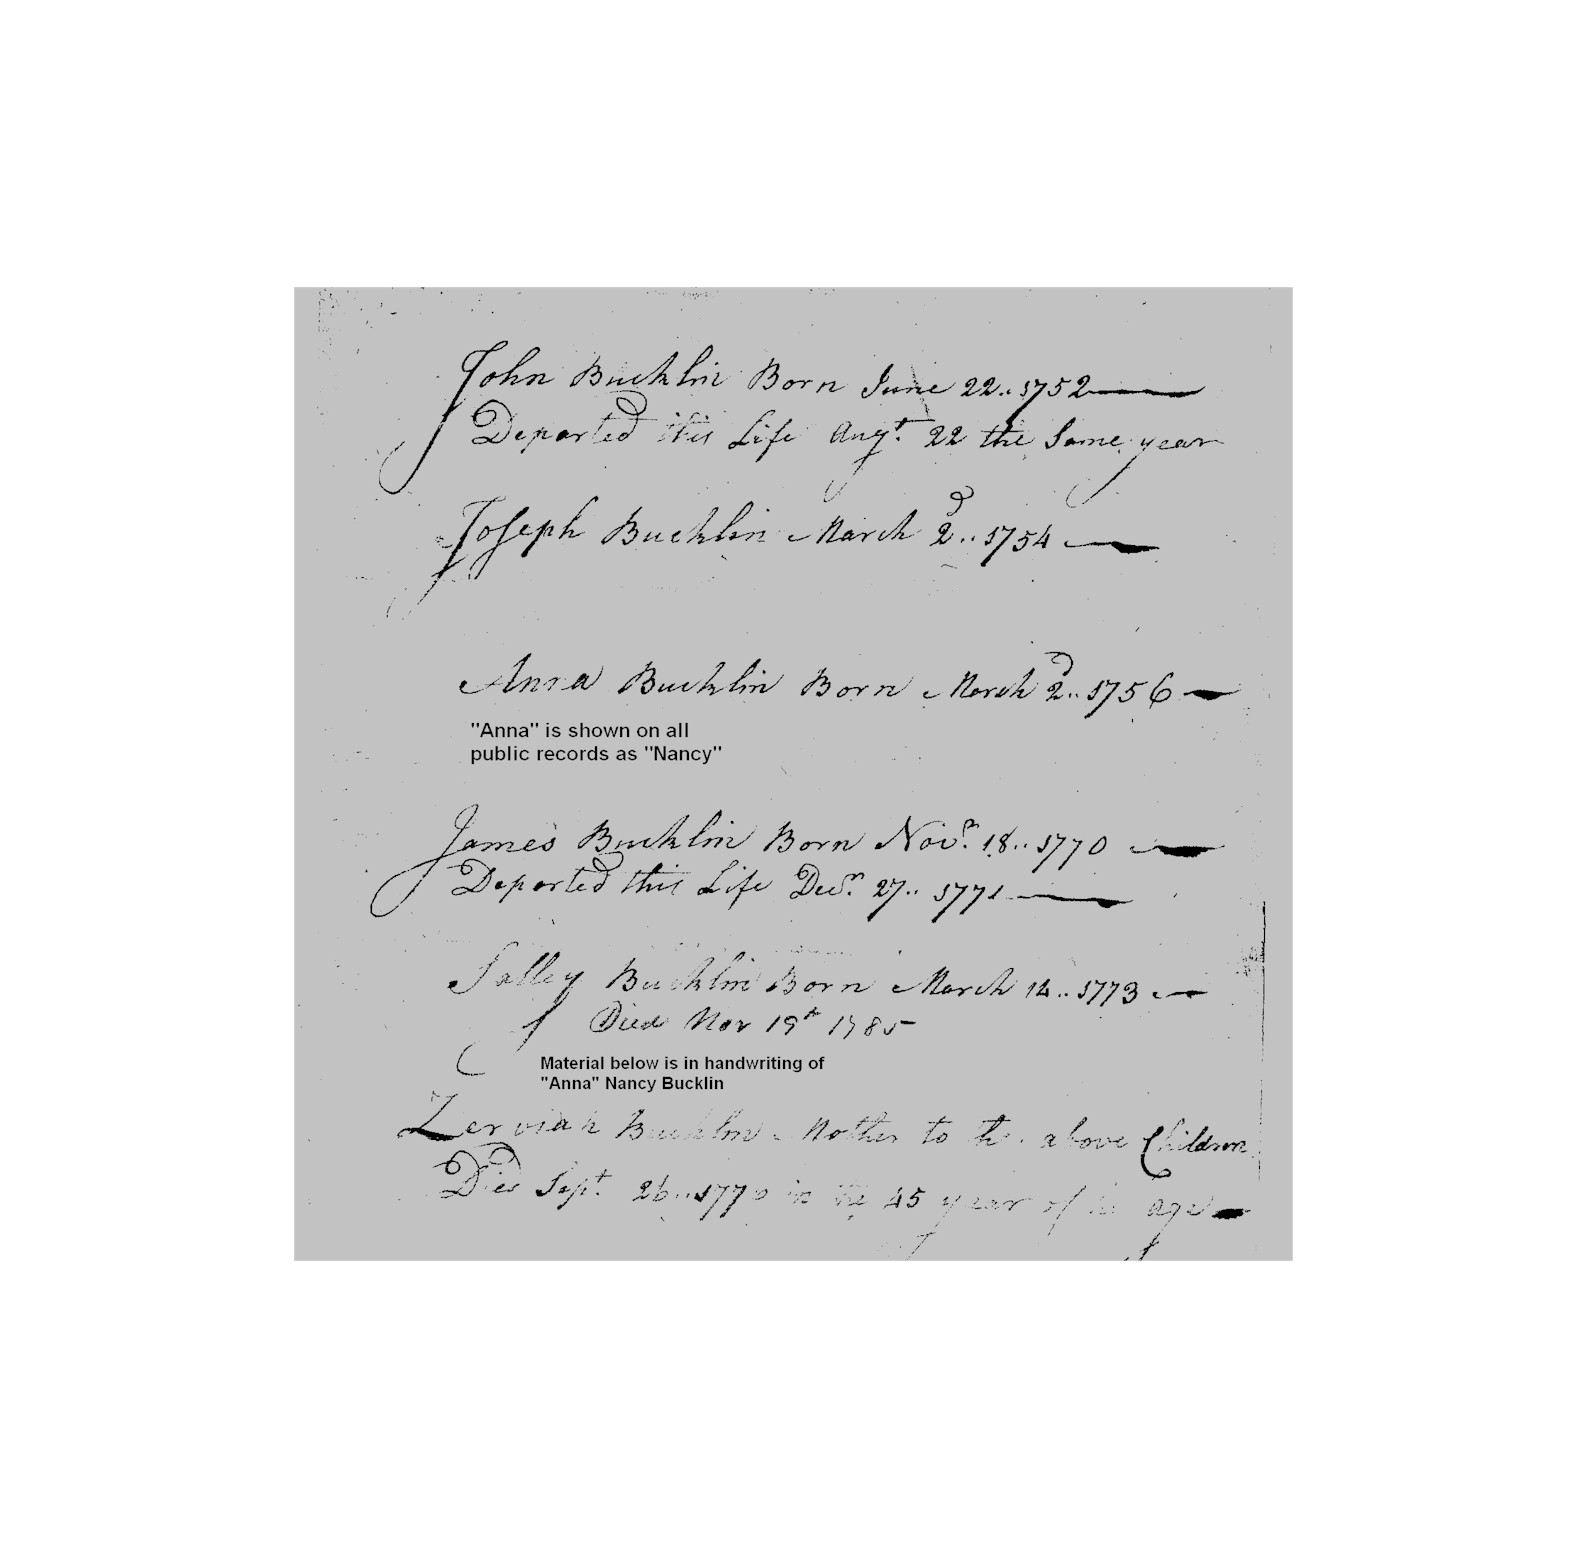 John Bucklin Born June 22.. 1752
Departed this Life Augt. 22 the Same year
Joseph Bucklin March 2d.. 1754
Anna Bucklin Born March 2d.. 1756
"Anna" is shown on all
public records as "Nancy"
James Bucklin Born Novr. 18.. 1770
Departed this Life Decr. 27.. 1771
Salley Bucklin Born March 14.. 1773
Died Nov 19th 1785
Material below is in handwriting of
"Anna" Nancy Bucklin
Zerviah Bucklin Mother to the above Children
Died Sept. 26.. 1770 in the 45 year of age